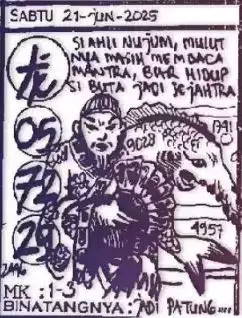 SABTU 21-jun-2025
SI AHLI NUJUM, MULUT
NYA MASIH MEMBACA
MANTRA, BIAR HIDUP
SI BUTA JADI SEJAHTRA
05
9028
72
4957
29
MK : 1-3
BINATANGNYA : JADI PATUNG....